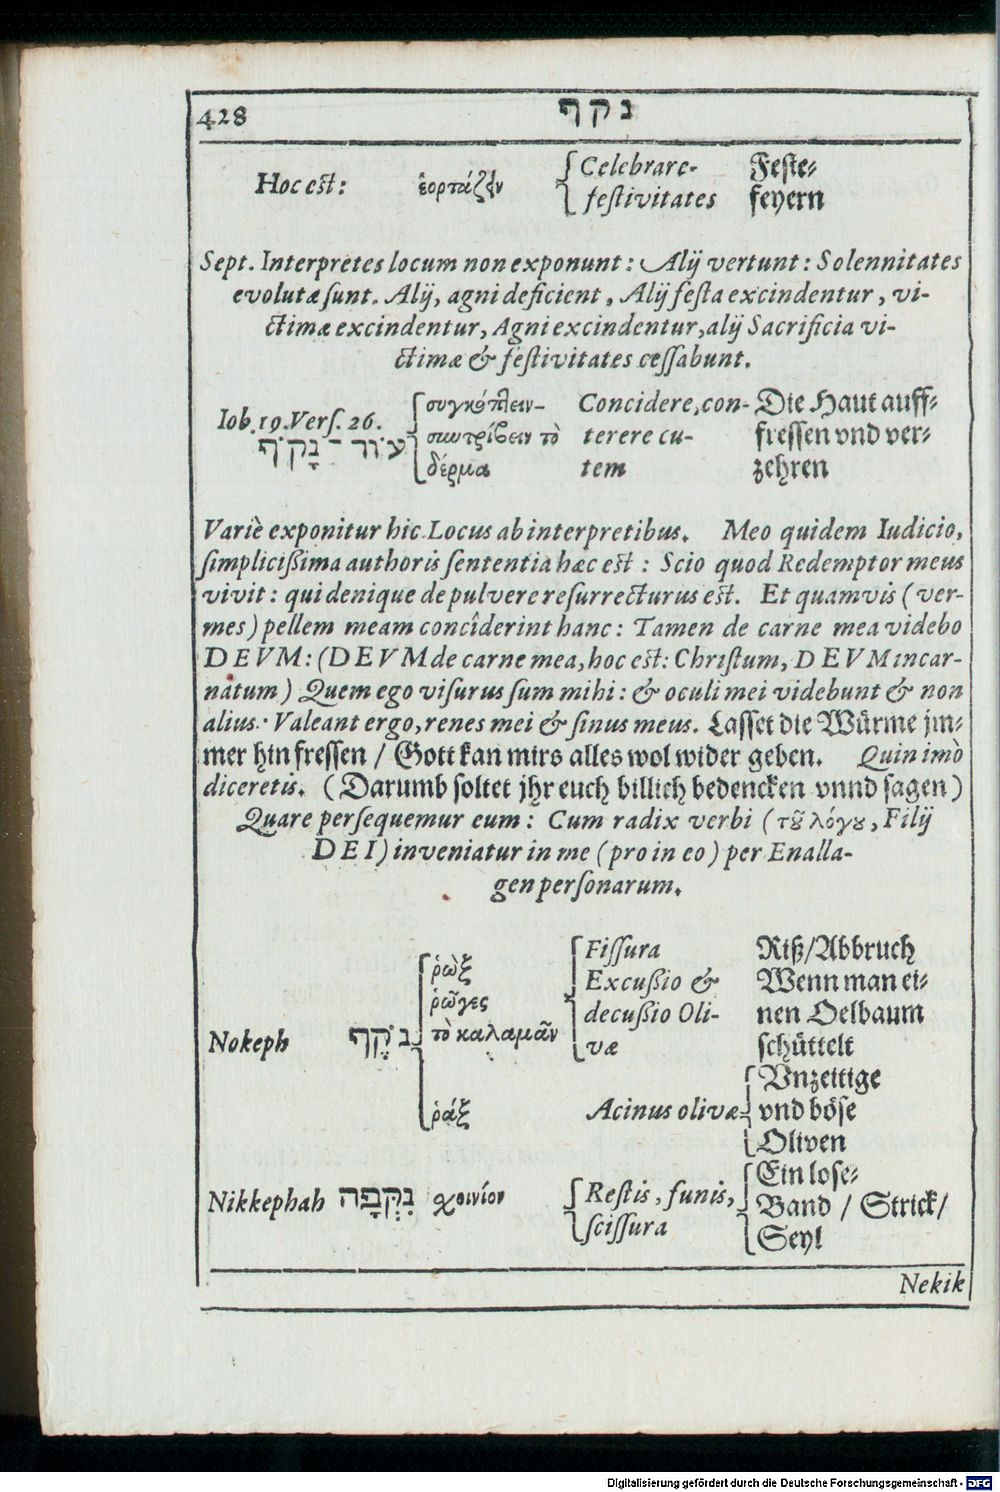 428 נקף
Hoc est: ἑορτάζειν Celebrare- Feste-
festivitates feyern
Sept. Interpretes locum non exponunt: Alij vertunt: Solennitates
evolutæ sunt. Alij, agni deficient, Alij festa excindentur, vi-
ctimæ excindentur, Agni excindentur, alij Sacrificia vi-
ctimæ & festivitates cessabunt.
Iob. 19. Vers. 26. συγκόπτειν- Concidere, con- Die Haut auff-
עור־נקף συντρίβειν τὸ terere cu- fressen vnd ver-
δέρμα tem zehren
Variè exponitur hic Locus ab interpretibus. Meo quidem Iudicio,
simplicißima authoris sententia hæc est: Scio quod Redemptor meus
vivit: qui denique de pulvere resurrecturus est. Et quamvis (ver-
mes) pellem meam concîderint hanc: Tamen de carne mea videbo
DEVM: (DEVM de carne mea, hoc est: Christum, DEVM incar-
natum) Quem ego visurus sum mihi: & oculi mei videbunt & non
alius: Valeant ergo, renes mei & sinus meus. Lasset die Würme jm-
mer hin fressen / Gott kan mirs alles wol wider geben. Quin imò
diceretis. (Darumb soltet jhr euch billich bedencken vnnd sagen)
Quare persequemur eum: Cum radix verbi (τοῦ λόγου, Filij
DEI) inveniatur in me (pro in eo) per Enalla-
gen personarum.
ῥὼξ Fissura Riß/Abbruch
ῥῶγες Excußio & Wenn man ei-
Nokeph נֹקֶף τὸ καλαμᾶν decußio Oli- nen Oelbaum
væ schüttelt
Vnzeitige
ῥάξ Acinus olivæ vnd böse
Oliven
Ein lose-
Nikkephah נִקְּפָּה σχοινίον Restis, funis, Band / Strick/
scissura Seyl
Nekik
Digitalisierung gefördert durch die Deutsche Forschungsgemeinschaft - DFG